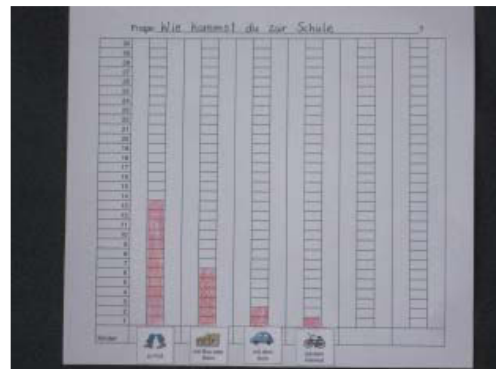 Frage: Wie kommst du zur Schule ?
30
29
28
27
26
25
24
23
22
21
20
19
18
17
16
15
14
13
12
11
10
9
8
7
6
5
4
3
2
1
Kinder
zu Fuß
mit Bus oder Bahn
mit dem Auto
mit dem Fahrrad